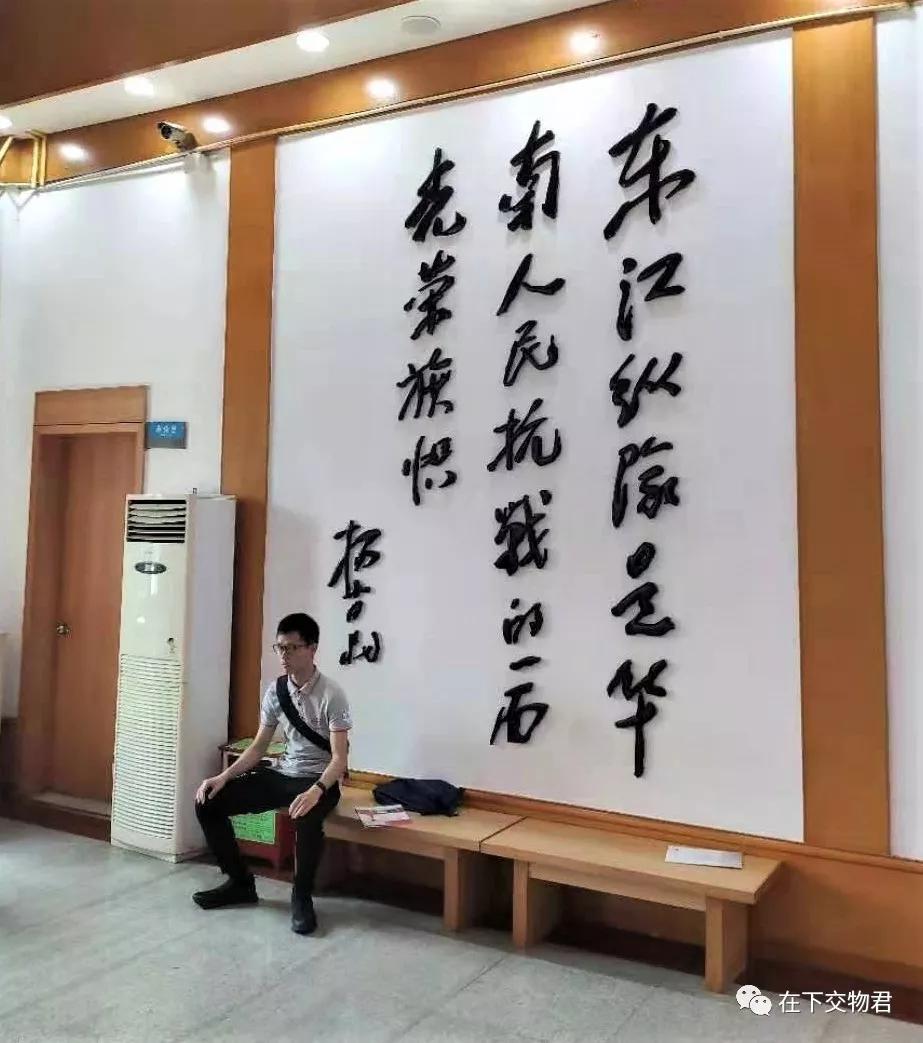 东江纵隊是华
南人民抗戰的一面
光荣旗帜
杨尚昆
在下交物君